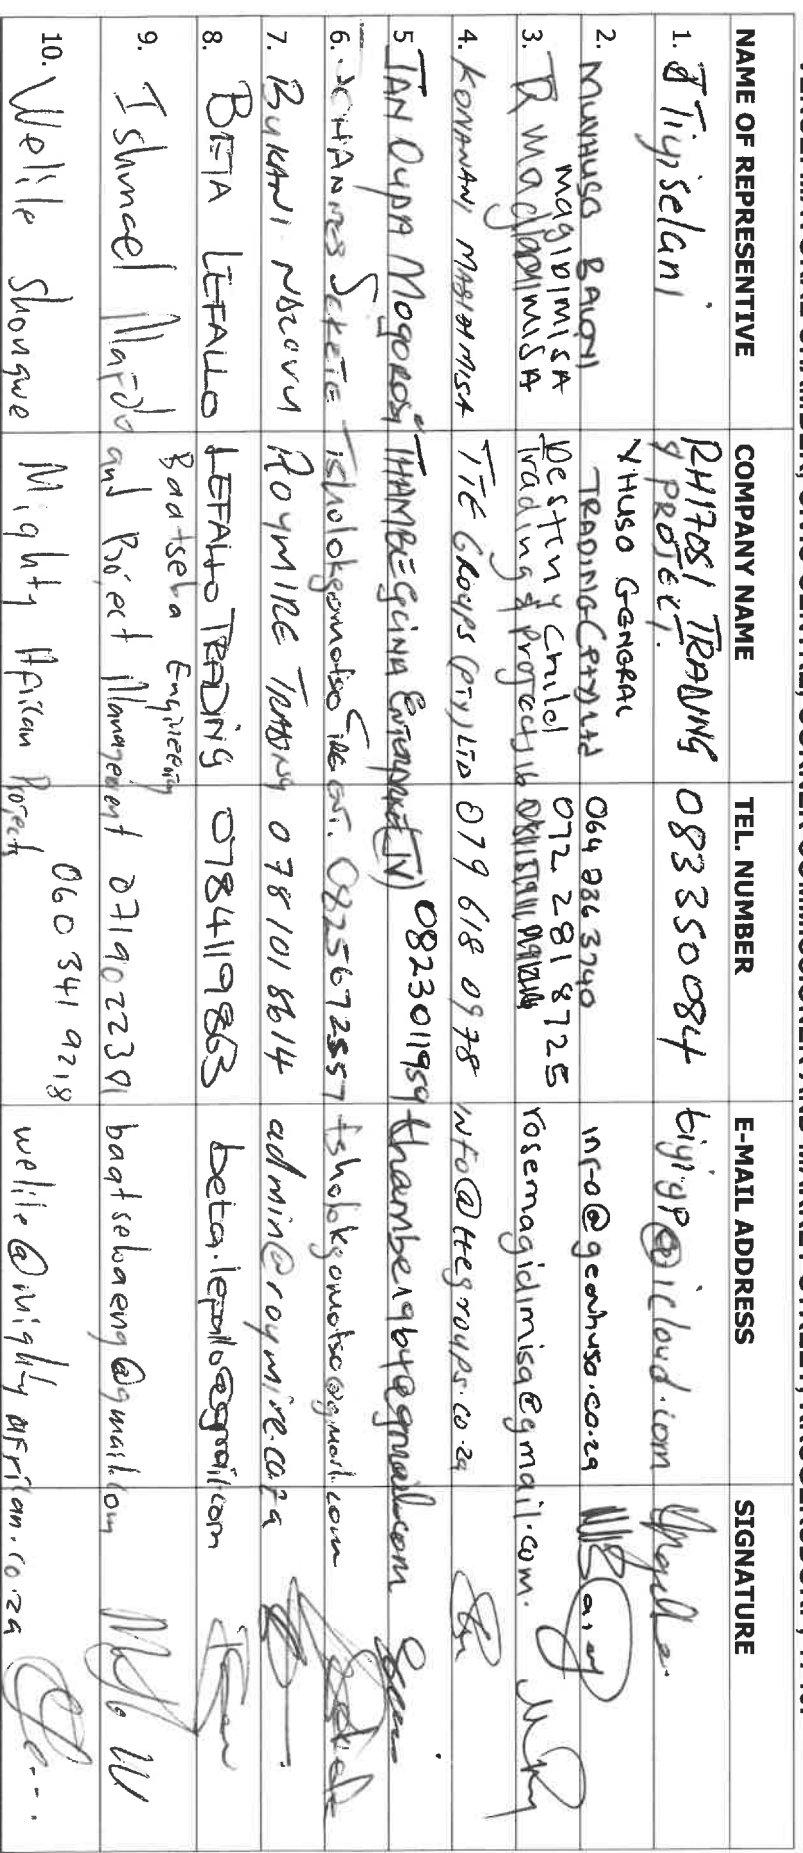 NAME OF REPRESENTIVE COMPANY NAME TEL. NUMBER E-MAIL ADDRESS SIGNATURE
1. J Tiyiselani RH17051 TRADING & PROJECT. 0833350084 tiyi.gp@icloud.com
2. MUVHUSO BALOYI YHUSO GENERAL TRADING (PTY) Ltd 064 8363740 info@genhuso.co.za
3. R magidimisa MAGIDIMISA Destiny Child Trading & Projects 16 072 281 8725 rosemagidimisa@gmail.com.
4. KONANANI MAGIDIMISA TTE GROUPS (PTY) LTD 079 618 0978 info@ttegroups.co.za
5 JAN OUPA MOGOROSI THAMBEGCINA ENTERPRISE (JV) 0823011959 thambeng64@gmail.com
6. JOHANNES SEKETE Tsholokgomotso 0825672557 tsholokgomotso@gmail.com
7. BUKANI NDLOVU ROYMIRE TRADING 078 101 8614 admin@roymire.co.za
8. BETA LEFALLO LEFALLO TRADING 0784119863 beta.lefallo@gmail.com
9. Ishmael Baatseba Engineering and Project Management 0719022301 baatsebaeng@gmail.com
10. Welile Shongwe Mighty African Projects 060 341 9218 welile@mightyafrican.co.za